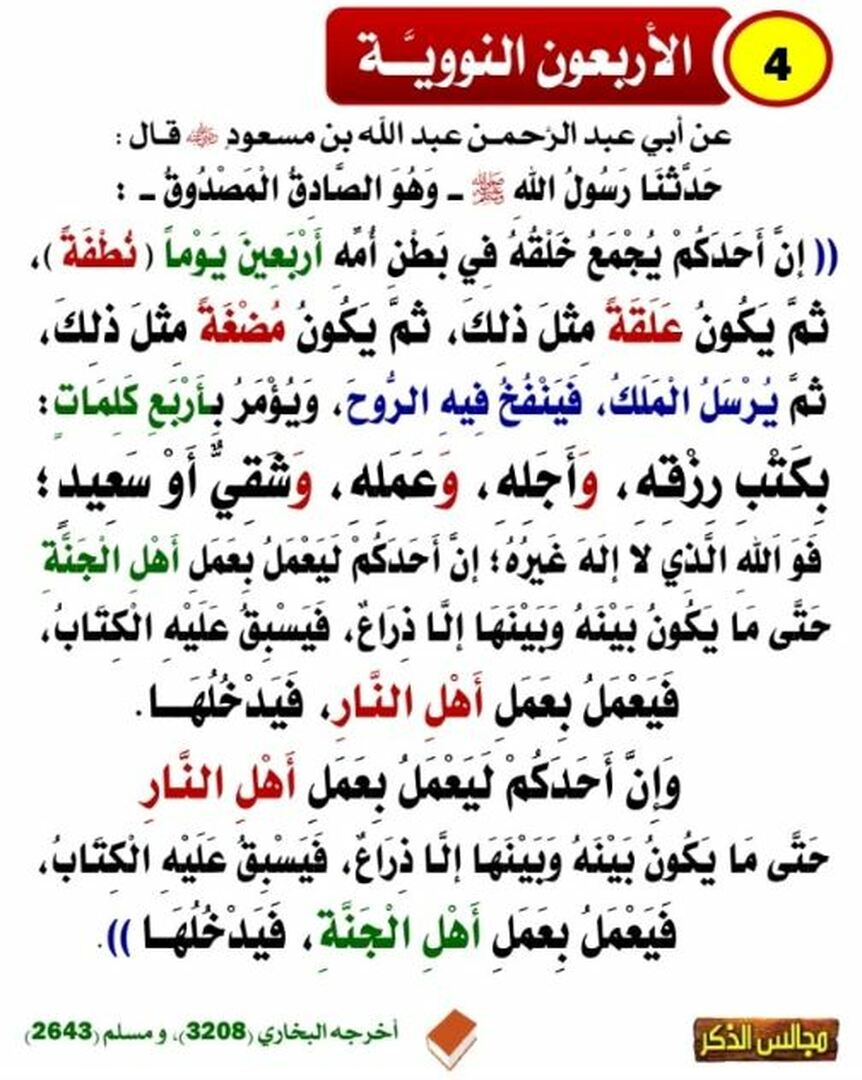 4
الأربعون النوويَّـة
عن أبي عبد الرَّحمـن عبد الله بن مسعود ﵁ قـال :
حَدَّثَنَا رَسُولُ الله ﷺ ـ وَهُوَ الصَّادِقُ الْمَصْدُوقُ ـ :
(( إنَّ أَحَدَكُمْ يُجْمَعُ خَلْقُهُ فِي بَطْنِ أُمِّه أَرْبَعِينَ يَوْماً ( نُطْفَةً )،
ثمَّ يَكُونُ عَلَقَةً مثلَ ذلكَ، ثمَّ يَكُونُ مُضْغَةً مثلَ ذلِكَ،
ثمَّ يُرْسَلُ الْمَلَكُ، فَيَنْفُخُ فِيهِ الرُّوحَ، وَيُؤْمَرُ بِأَرْبَعِ كَلِمَاتٍ :
بِكَتْبِ رِزْقِه، وَأَجَلِه، وَعَمَلِه، وَشَقِيٌّ أَوْ سَعِيدٌ ؛
فَوَ اللهِ الَّذِي لا إلهَ غَيرُهُ؛ إنَّ أَحَدَكُمْ لَيَعْمَلُ بِعَمَلِ أَهْلِ الْجَنَّةِ
حَتَّى مَا يَكُونُ بَيْنَهُ وَبَيْنَهَا إلَّا ذِرَاعٌ، فَيَسْبِقُ عَلَيْهِ الْكِتَابُ،
فَيَعْمَلُ بِعَمَلِ أَهْلِ النَّارِ، فَيَدْخُلُهَـا .
وَإِنَّ أَحَدَكُمْ لَيَعْمَلُ بِعَمَلِ أَهْلِ النَّارِ
حَتَّى مَا يَكُونُ بَيْنَهُ وَبَيْنَهَا إلَّا ذِرَاعٌ، فَيَسْبِقُ عَلَيْهِ الْكِتَابُ،
فَيَعْمَلُ بِعَمَلِ أَهْلِ الْجَنَّةِ، فَيَدْخُلُهَـا )).
مجالس الذكر
أخرجه البخاري (3208)، و مسلم (2643)